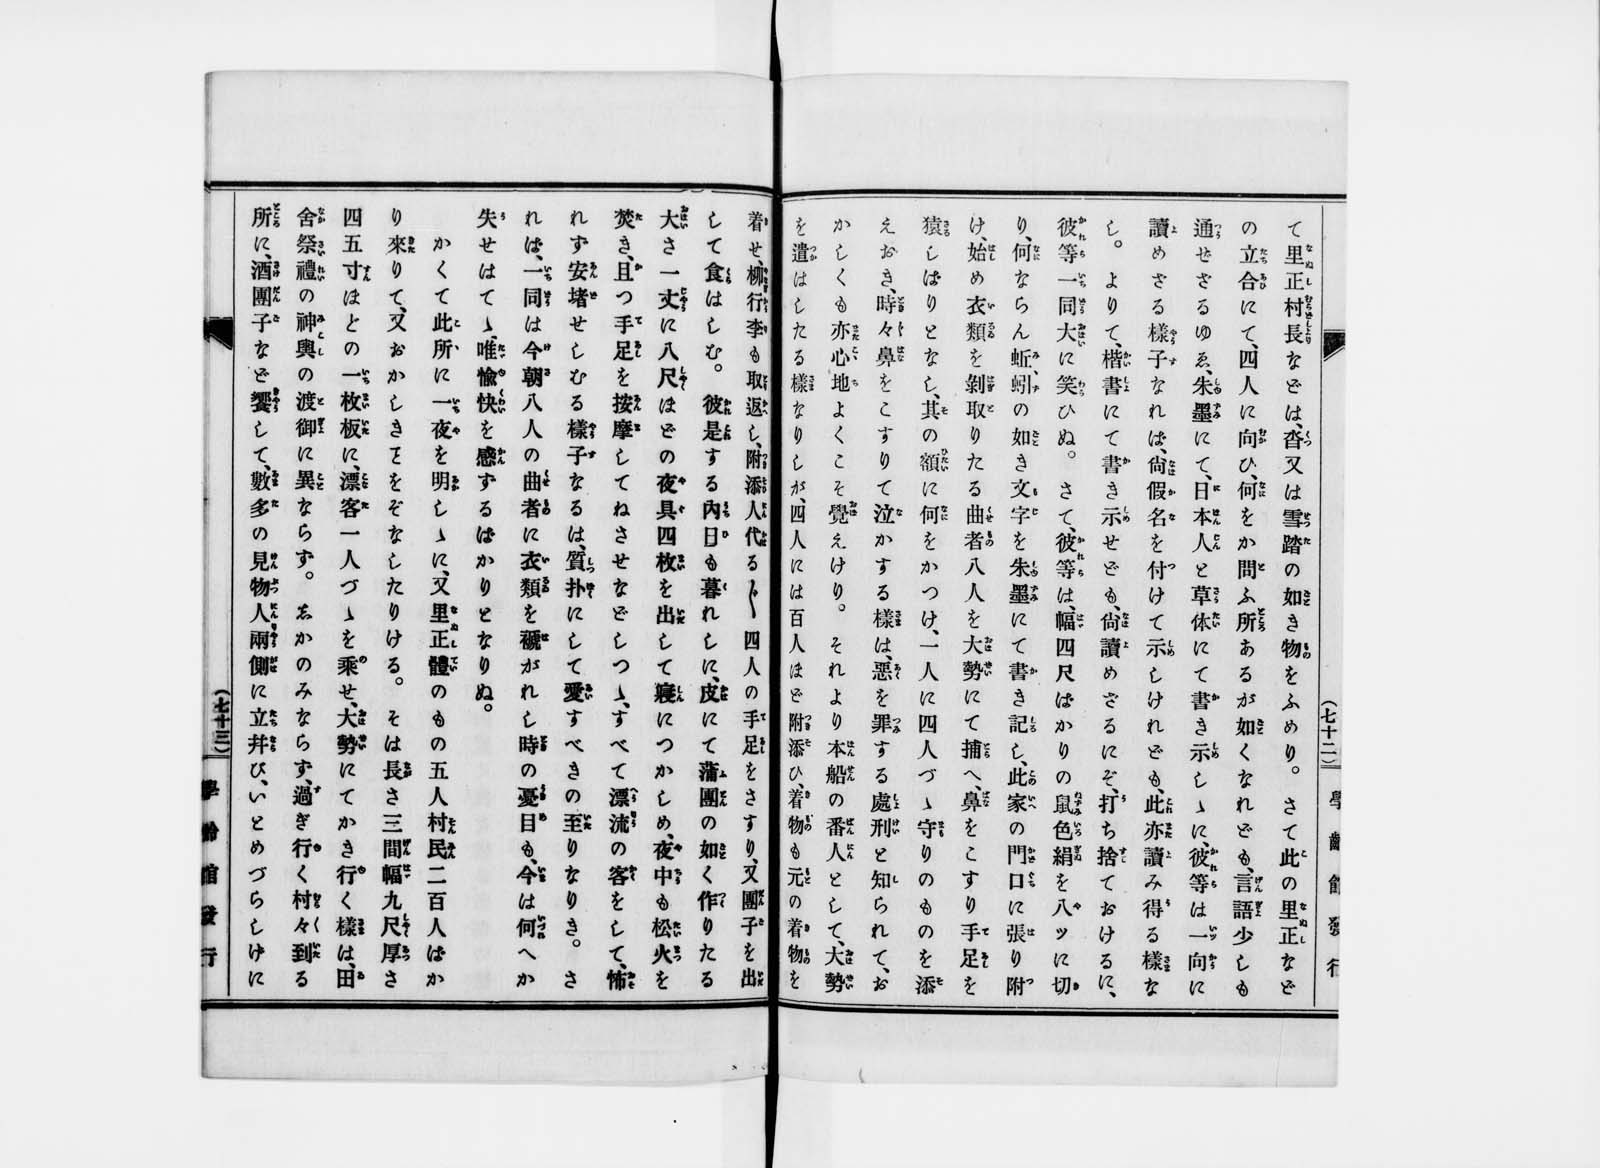 て里正村長などは、沓又は雪踏の如き物をふめり。さて此の里正など
の立合にて、四人に向ひ、何をか問ふ所あるが如くなれども、言語少しも
通せざるゆゑ、朱墨にて、日本人と草体にて書き示しゝに、彼等は一向に
讀めさる樣子なれば、尙假名を付けて示しけれども、此亦讀み得る樣な
し。よりて、楷書にて書き示せども、尙讀めざるにぞ、打ち捨ておけるに、
彼等一同大に笑ひぬ。さて、彼等は、幅四尺ばかりの鼠色絹を八ッに切
り、何ならん蚯蚓の如き文字を朱墨にて書き記し、此家の門口に張り附
け、始め衣類を剝取りたる曲者八人を大勢にて捕へ、鼻をこすり手足を
猿しばりとなし、其の額に何をかつけ、一人に四人づゝ守りのものを添
えおき、時々鼻をこすりて泣かする樣は、惡を罪する處刑と知られて、お
かしくも亦心地よくこそ覺えけり。それより本船の番人として、大勢
を遣はしたる樣なりしが、四人には百人ほど附添ひ、着物も元の着物を
(七十二)
學齡館發行
着せ、柳行李も取返し、附添人代る〳〵四人の手足をさすり、又團子を出
して食はしむ。彼是する內日も暮れしに、皮にて蒲團の如く作りたる
大さ一丈に八尺ほどの夜具四枚を出して寢につかしめ、夜中も松火を
焚き、且つ手足を按摩してねさせなどしつゝ、すべて漂流の客をして、怖
れず安堵せしむる樣子なるは、質扑にして愛すべきの至りなりき。さ
れば、一同は今朝八人の曲者に衣類を褫がれし時の憂目も、今は何へか
失せはてゝ、唯愉快を感ずるばかりとなりぬ。
かくて此所に一夜を明しゝに、又里正體のもの五人村民二百人ばか
り來りて、又おかしきヿをぞなしたりける。そは長さ三間幅九尺厚さ
四五寸ほとの一枚板に、漂客一人づゝを乘せ、大勢にてかき行く樣は、田
舍祭禮の神輿の渡御に異ならず。志かのみならず、過ぎ行く村々到る
所に、酒團子など饗して、數多の見物人兩側に立幷び、いとめづらしけに
(七十三)
學齡館發行